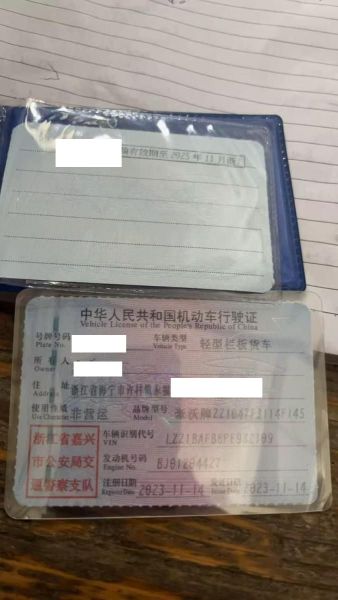 有效期至2025年11月
中华人民共和国机动车行驶证
Vehicle License of the People's Republic of China
号牌号码 Plate No. 车辆类型 Vehicle Type 轻型栏板货车
所有人 Owner
住址 Address 浙江省海宁市许村镇永福
使用性质 Use Character 非营运 品牌型号 Model
浙江省嘉兴 车辆识别代号 VIN
市公安局交 发动机号码 Engine No.
通警察支队 注册日期 Register Date 2023-11-14 发证日期 Issue Date 2023-11-14